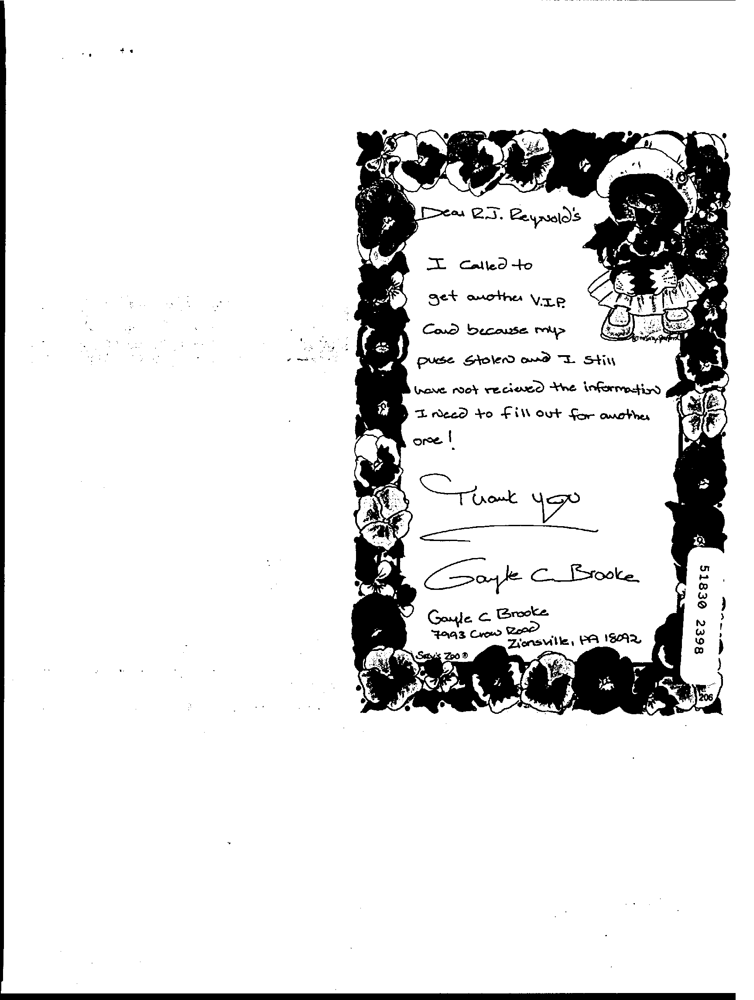 Dear R.J. Reynold's
I called to
get another V.I.P.
Card because my
purse stolen and I still
have not recieved the information
I need to fill out for another
one!
Thank you
Gayle C Brooke
Gayle C Brooke
7993 Crow Road
Zionsville, PA 18092
Suzy's Zoo ®
206
51830 2398